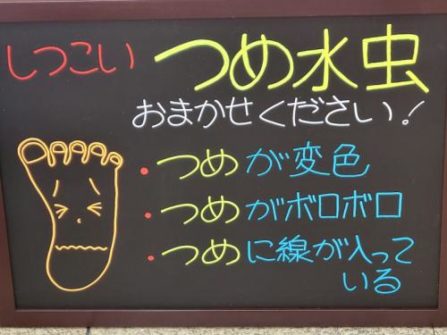 しつこい つめ水虫
おまかせください!
・つめが変色
・つめがボロボロ
・つめに線が入って
いる